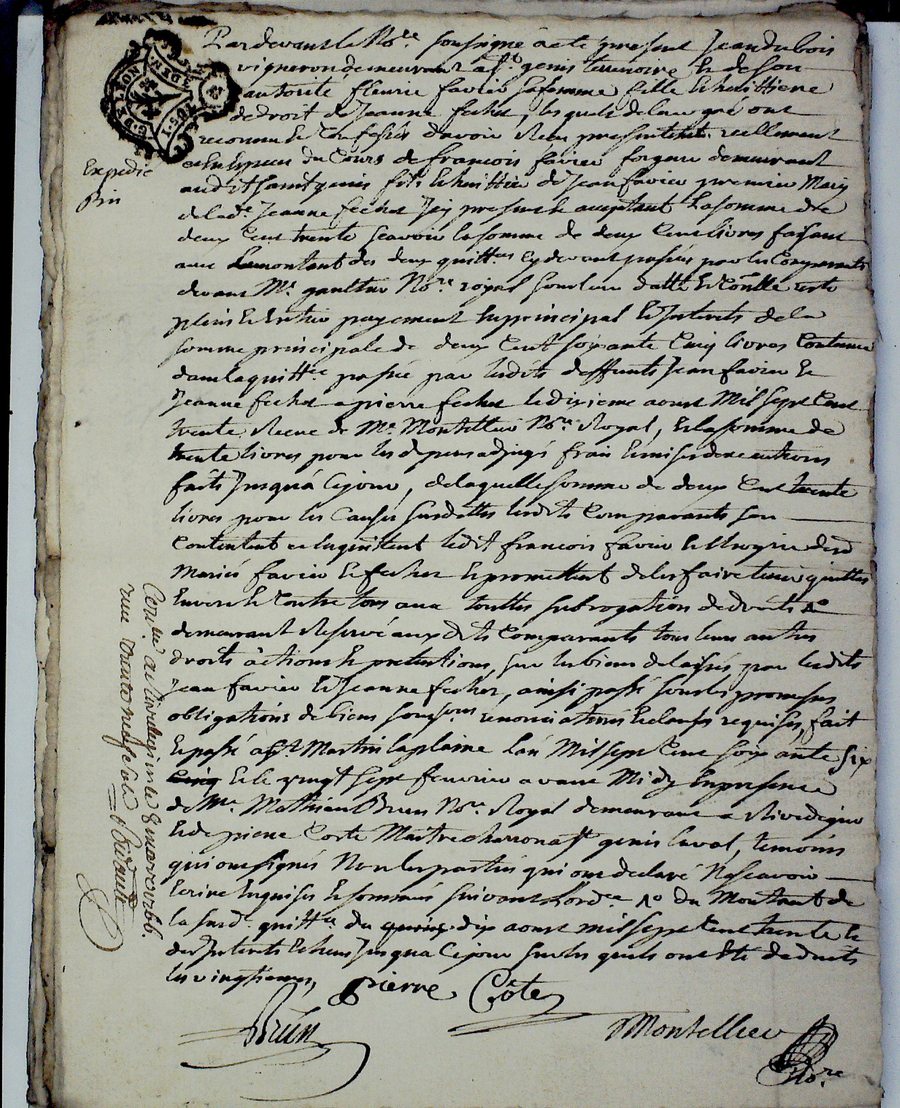 Pardevant le No.re soussigné a été présent Jean dubois
vigneron demeurant a St genis terrinoire Et de son
autorité fleurie favier sa femme fille Et héritière
de droit de Jeanne fechet, lesquels de leur gré ont
reconnu Et Confessés d'avoir Reçu présentement réellement
Expedié
Brun
en Espèces du Cours de françois favier forgeur demeurant
audit saint genis fils Et héritier de Jean favier premier Mary
de lad. Jeanne fechet Icy présent Et acceptant la somme de
deux Cent trente scavoir la somme de deux Cent livres faisant
avec le montant des deux quitt.ces Cy devant passées par les Comparants
devant Me. gaultier No.re royal sous leur datte Et Conllé reste
plein Et Entier payement En principal Et Interets de la
somme principale de deux Cent soixante Cinq livres Contenue
dans la quitt.ce passée par lesdits deffunts Jean favier Et
Jeanne fechet a pierre fechet le dixieme aoust Mil Sept Cent
trente Receue de Me. Montellier No.re Royal, Et la somme de
trente livres pour les depens adjugés frais Et mises d'executions
faits Jusqu'à Cejour, de laquelle somme de deux Cent trente
livres pour les Causes susdittes lesdits Comparants se
Contentent en Enquittent ledit françois favier Et l'hoyrie desd
Mariés favier Et fechet Et promettent de les faire tenir quittes
Envers Et Contre tous avec touttes subrogations de droits No
demeurant Reservé auxdits Comparants tous leurs autres
droits actions Et pretentions, sur les biens delaissés par lesdits
Jean favier Et Jeanne fechet, ainsi passé sous les promesses
obligations de biens soumis.ons rénonciations Et clauses requises, fait
Et passé a St. Martin la plaine L'an Mil Sept Cent soixante Six
Cinq Et le vingt sept fevrier avant Midy En presence
de Me. Mathieu Brun No.re Royal demeurant a Rivedegier
Et de pierre Coste Maitre charron a St genis laval, temoins
qui ont signés Non les parties qui ont declaré Ne scavoir
Ecrire Enquises Et sommées suivant L'ord.ce No du Montant de
la susd. quitt.ce du quinz dix aoust mil sept Cent trente Et
des Interets Echeus Jusqu'a Cejour sur lesquels ont Eté deduits
les vingtiemes,
Pierre Côte
Brun
Montellier
No.re
Con.lé a Rivedegier le 9 mars 1766.
reçu